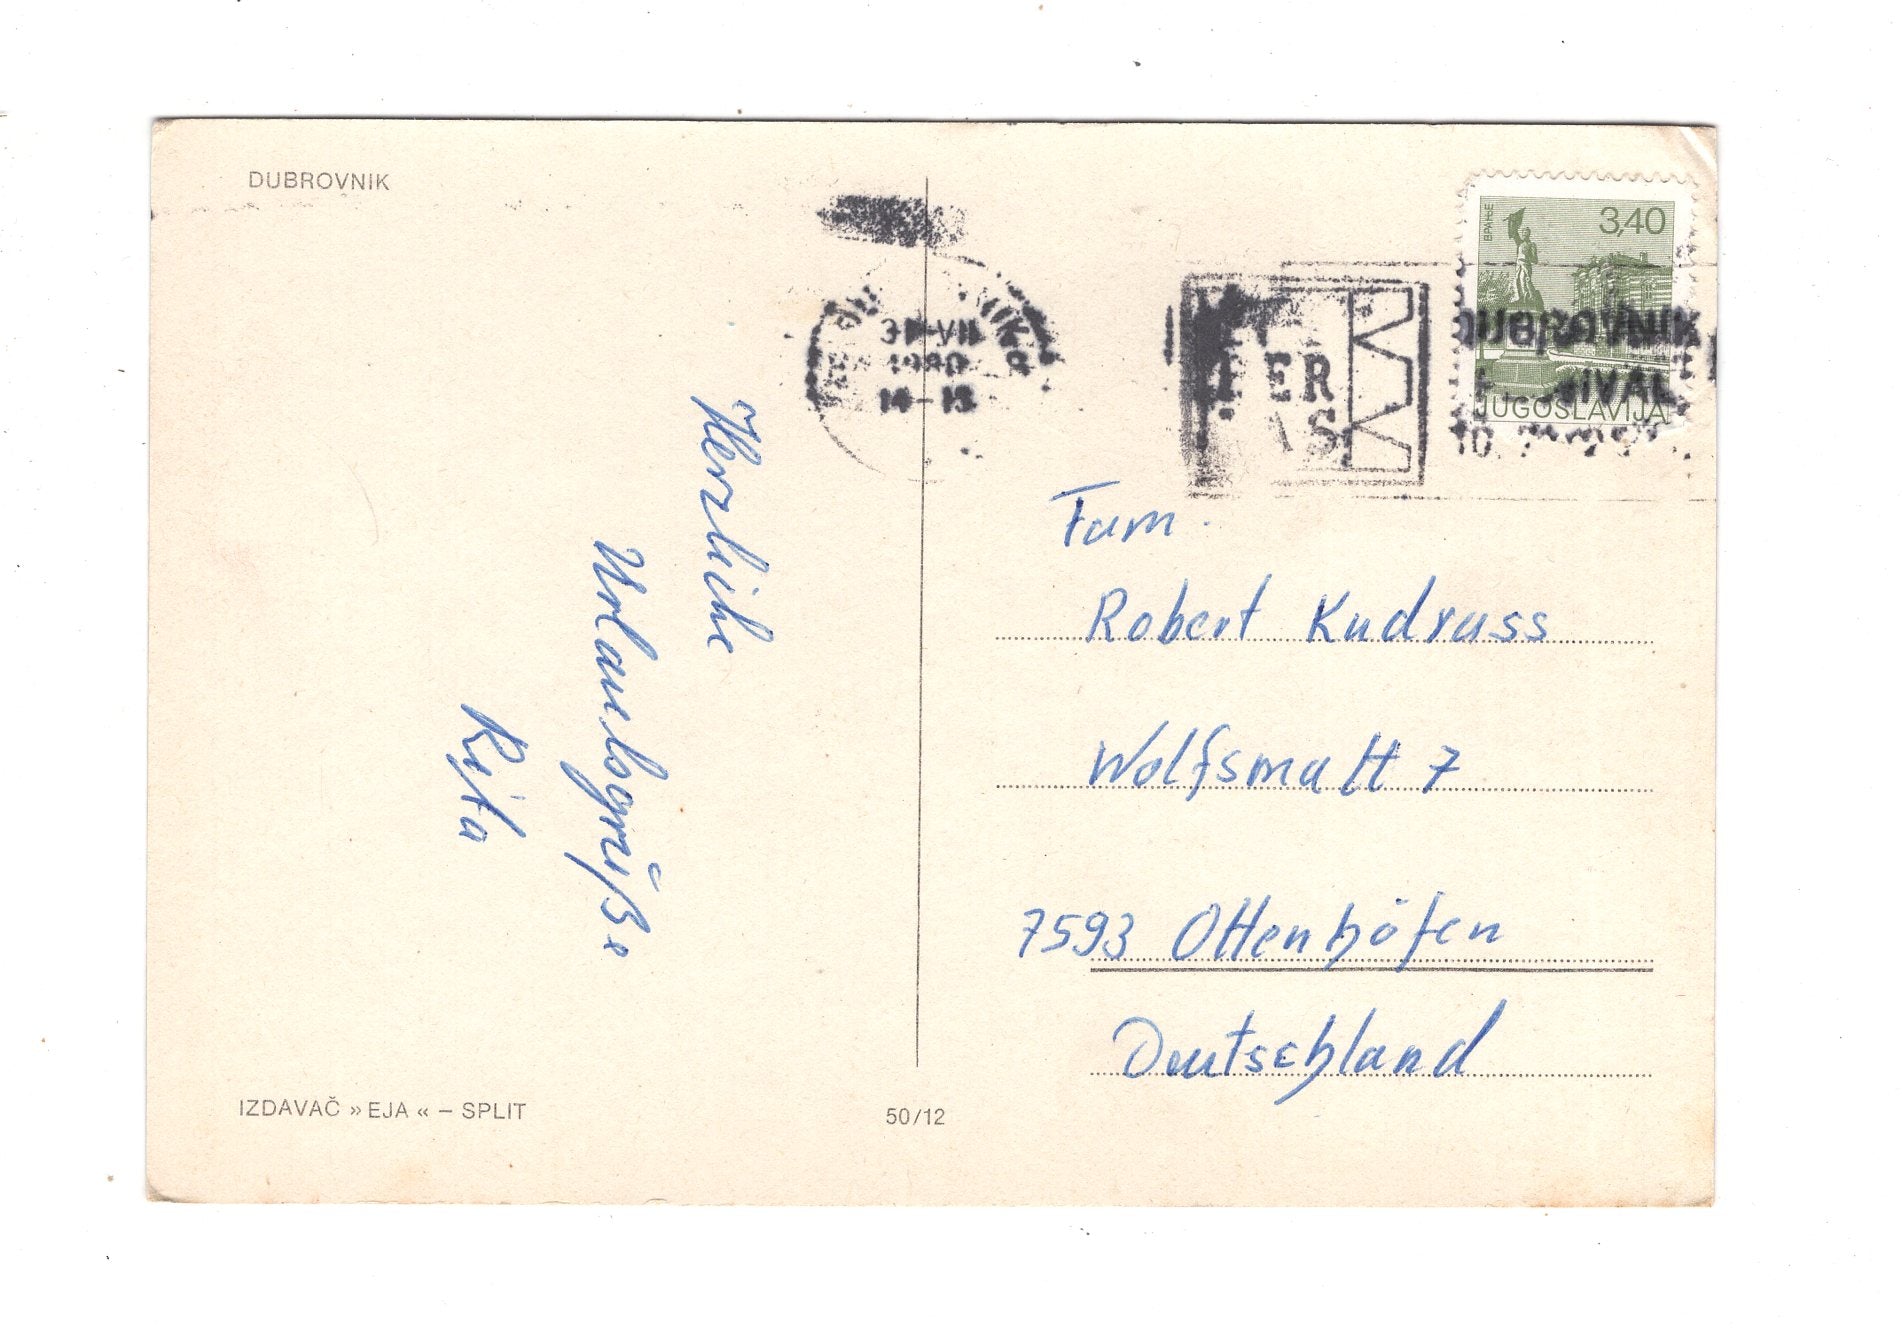 DUBROVNIK
Herzliche
Urlaubsgrüße
Rita
IZDAVAČ »EJA« – SPLIT
50/12
31-VII
1980
14-15
ВРАЊЕ
3,40
JUGOSLAVIJA
DUBROVNIK
Fam.
Robert Kudruss
Wolfsmatt 7
7593 Ottenhöfen
Deutschland